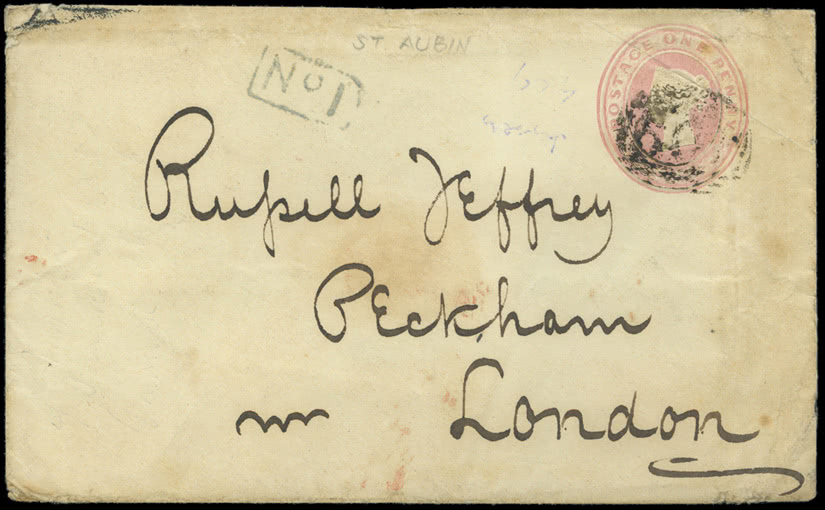 ST. AUBIN
No 1
POSTAGE ONE PENNY
Rufsell Jeffrey
Peckham
nr London